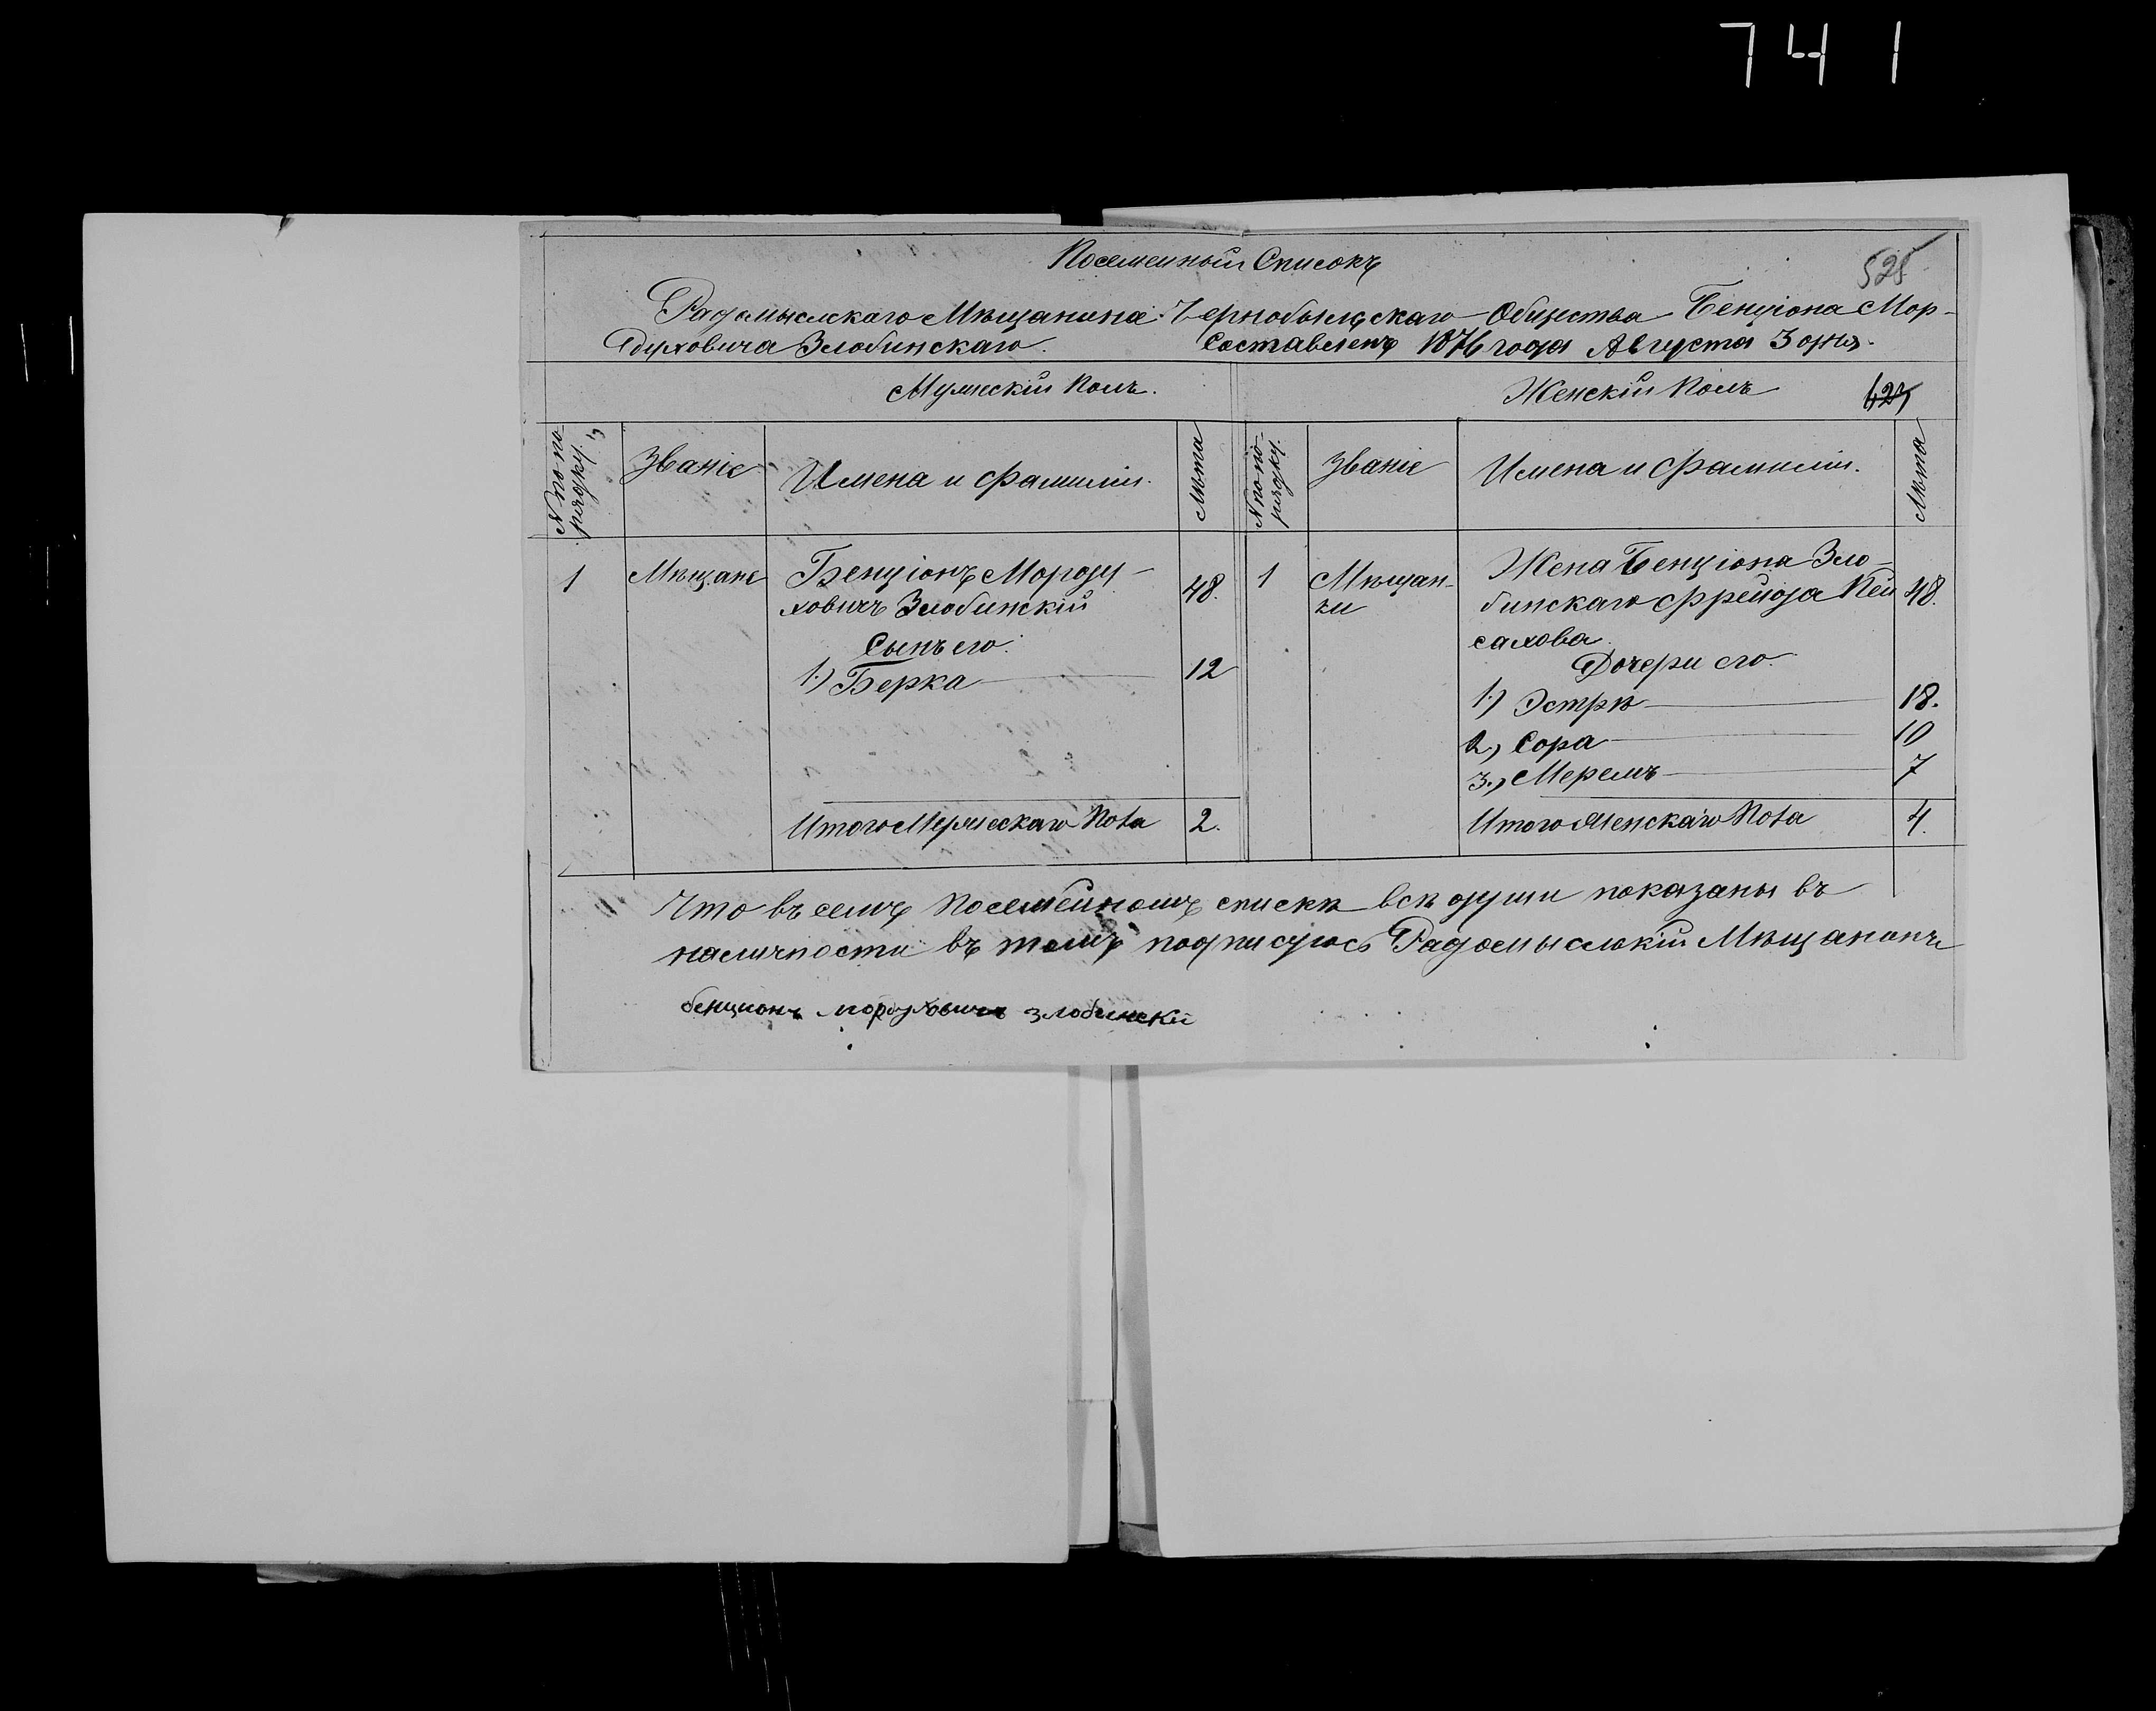 741
Посемейный Списокъ
525
Радомысльскаго Мѣщанина Чернобыльскаго Общества Бенціона Мор-
духовича Злобинскаго. Составленъ 1876 года Августа 3 дня.
Мужескій Полъ. Женскій Полъ
№ по по-
рядку. Званіе Имена и фамиліи. Лѣта № по по-
рядку. Званіе Имена и фамиліи. Лѣта
1 Мѣщане Бенціонъ Мордy-
ховичъ Злобинскій 48.
Сынъ его:
1.) Берка 12
Итого Мужескаго Пола 2.
1 Мѣщан-
ки Жена Бенціона Зло-
бинскаго Фрейда Пей 48.
сахова
Дочери его:
1.) Эстръ 18.
2.) Сора 10
3.) Меремъ 7
Итого Женскаго Пола 4.
Что въ семъ посемейномъ спискѣ всѣ души показаны въ
наличности въ томъ подписуюсь Радомысльскій Мѣщанинъ
бенционъ мордуховичъ злобинскй